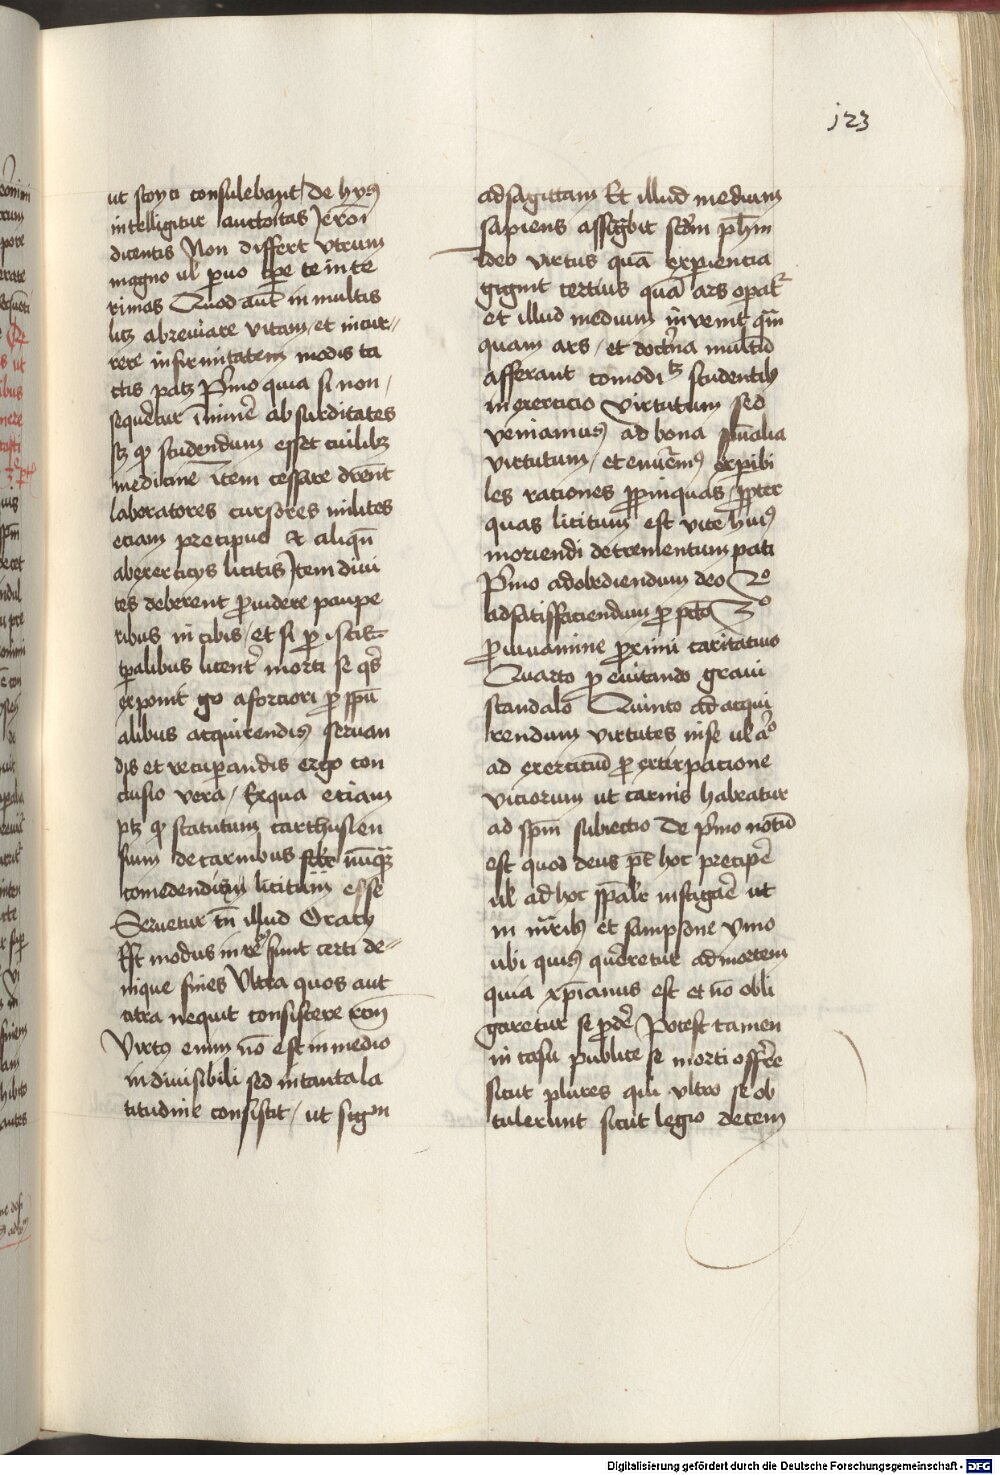 123
ut stoyci consulebant / de hijs
intelligitur auctoritas Jeroī
dicentis Non differt vtrum
magno ul' paruo tempore te inte
rimas Quod aut in multis
licet abreuiare vitam / et incur
rere infirmitatem modis ta
ctis patz Prīo quia si non
sequēretur
absurditates
sz qp studendum esset ciuilibz
medicine Item cessare drent
laboratores cursores milites
eciam precipue et aliqn̄
ab exercicijs licitis Item diui
tes deberent prouidere paupe
ribus in cibis / et si pro istis
tp̄alibus licent' morti se qs
exponit go a forciori pro spū
alibus acquirendis seruan
dis et recuperandis ergo con
clusio vera / Ex qua eciam
ptz qp statutum carthusien
sium de carnibus
nūqz
comedendis licitum esse
Seruetur tn̄ illud Oracij
Est modus in reb9 sunt certi de
nique fines Vltra quos aut
citra nequit consistere rcm̄
Virtus enim nō est in medio
indiuisibili sed in tanta la
titudine consistit / ut signm
ad sagittam Et illud medium
sapiens assignabit scdm ph̄m
Ideo virtus quā experiencia
gignit cercius quā ars opat'
et illud medium inuenit qm̄
quam ars / et doctrina multū
afferant comodi
studentibz
in exercicio virtutum sed
veniamus ad bona spūalia
virtutum / et
les rationes propinquas / propter
quas licitum est vite huius
moriendi detrementum pati
Primo ad obediendum deo 2o
ad satisfaciendum pro pctō 3o
pro iuuamine proximi caritatiuo
Quarto pro euitando graui
scandalo Quinto ad acqui
rendum virtutes in se ul'
ad exercitiū pro extirpacione
viciorum ut carnis habeatur
ad spm̄ subiectio De primo notū
est quod deus pt hoc precipe
ul' ad hoc spāl'r instigare ut
in mrībus et sampsone ymo
ubi quis quereretur ad mortem
quia xpianus est et nō obli
garetur se prodere Potest tamen
in casu publice se morti offerre
sicut plures qui vltro se ob
tulerunt sicut legio decem
Digitalisierung gefördert durch die Deutsche Forschungsgemeinschaft - DFG